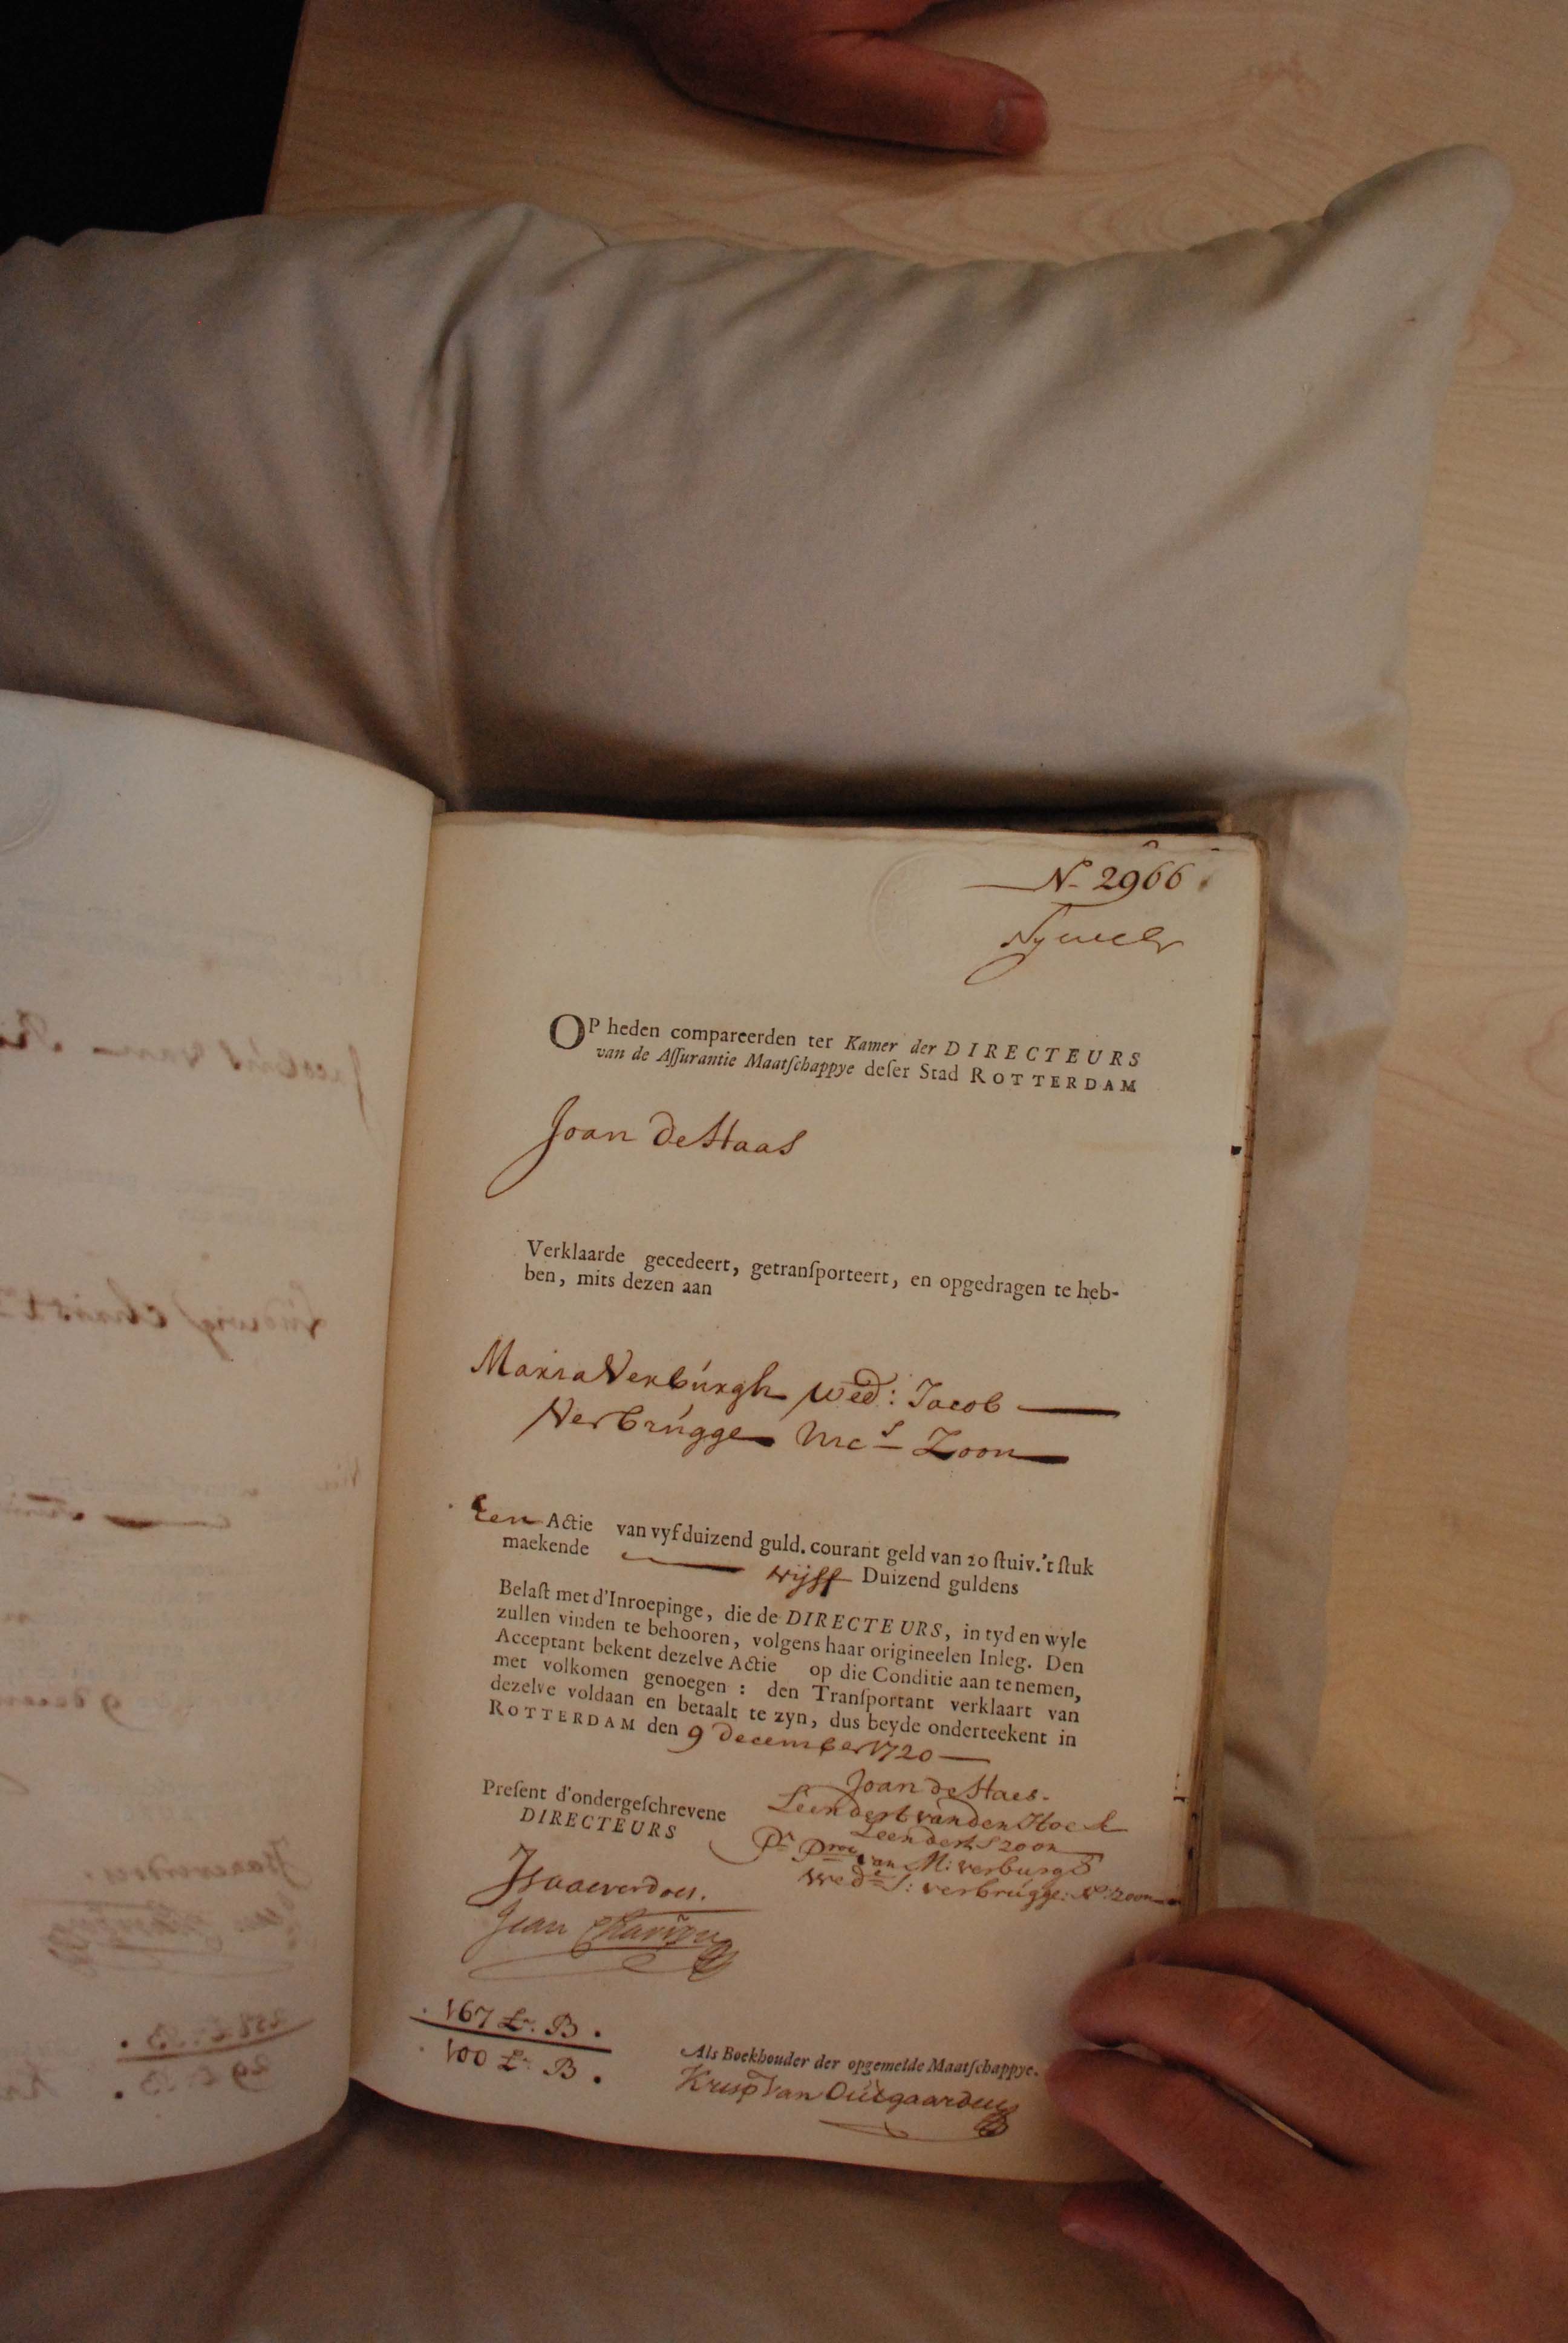 N. 2966
OP heden compareerden ter Kamer der DIRECTEURS
van de Aſſurantie Maatſchappye deſer Stad ROTTERDAM
Joan de Staas
Verklaarde gecedeert, getranſporteert, en opgedragen te heb-
ben, mits dezen aan
Maria Verburgh wed: Jacob
Verbrúgge Mc.s Zoon
Een Actie van vyf duizend guld. courant geld van 20 ſtuiv. 't ſtuk
maekende vijff Duizend guldens
Belaſt met d'Inroepinge, die de DIRECTEURS, in tyd en wyle
zullen vinden te behooren, volgens haar origineelen Inleg. Den
Acceptant bekent dezelve Actie op die Conditie aan te nemen,
met volkomen genoegen : den Tranſportant verklaart van
dezelve voldaan en betaalt te zyn, dus beyde onderteekent in
ROTTERDAM den 9 December 1720
Joan de Staes.
Leendert vanden Hoek
Leenderts zoon
Pr. Proc van M: verburgh
wede J: verbrúgge: zoon
Preſent d'ondergeſchrevene
DIRECTEURS
Isaac verdoes.
Jean
167 Lr. B.
100 Lr. B.
Als Boekhouder der opgemelde Maatſchappye.
Krisp Van Outgaarden